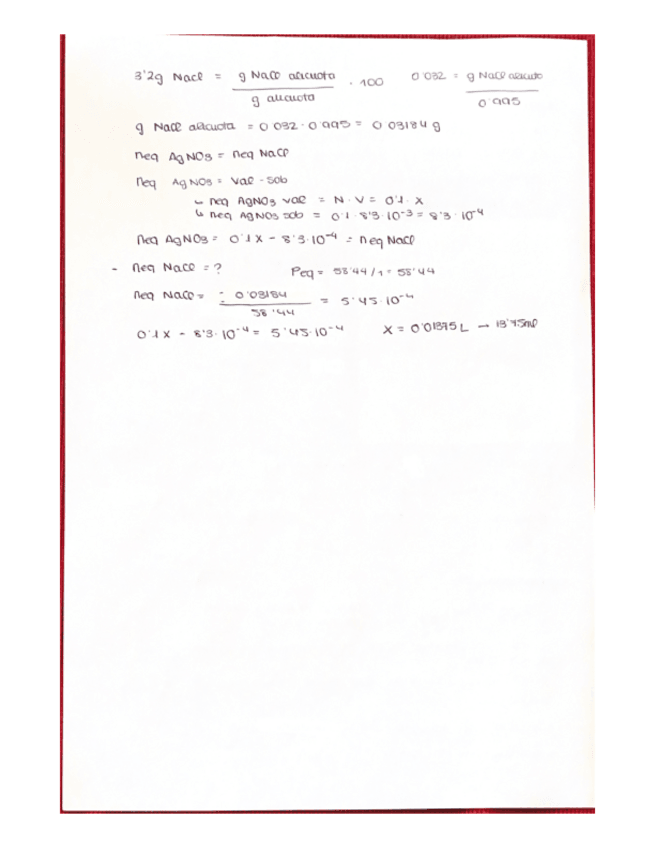 3'2g NaCl = g NaCl alícuota / g alícuota · 100    0'032 = g NaCl alícuota / 0'995
g NaCl alícuota = 0'032 · 0'995 = 0'03184 g
neq AgNO3 = neq NaCl
neq AgNO3 = val - sob
↳ neq AgNO3 val = N · V = 0'1 · X
↳ neq AgNO3 sob = 0'1 · 8'3 · 10⁻³ = 8'3 · 10⁻⁴
neq AgNO3 = 0'1 X - 8'3 · 10⁻⁴ = neq NaCl
- neq NaCl = ?    Peq = 58'44/1 = 58'44
neq NaCl = 0'03184 / 58'44 = 5'45 · 10⁻⁴
0'1 X - 8'3 · 10⁻⁴ = 5'45 · 10⁻⁴    X = 0'01375 L → 13'75ml